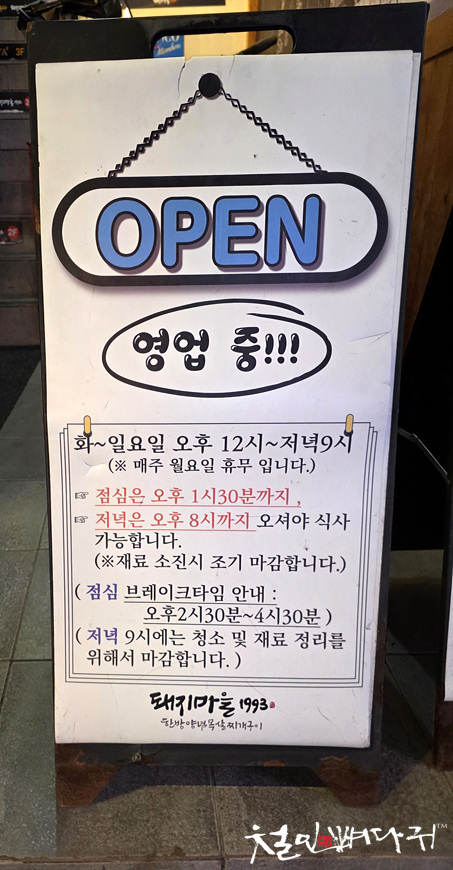 OPEN
영업 중!!!
화~일요일 오후 12시~저녁9시
(※ 매주 월요일 휴무 입니다.)
☞ 점심은 오후 1시30분까지 ,
☞ 저녁은 오후 8시까지 오셔야 식사
가능합니다.
(※재료 소진시 조기 마감합니다.)
( 점심 브레이크타임 안내 :
오후2시30분~4시30분 )
( 저녁 9시에는 청소 및 재료 정리를
위해서 마감합니다. )
돼지마을 1993
한방양념목살찌개구이
철민뼈다귀™
3F
2F